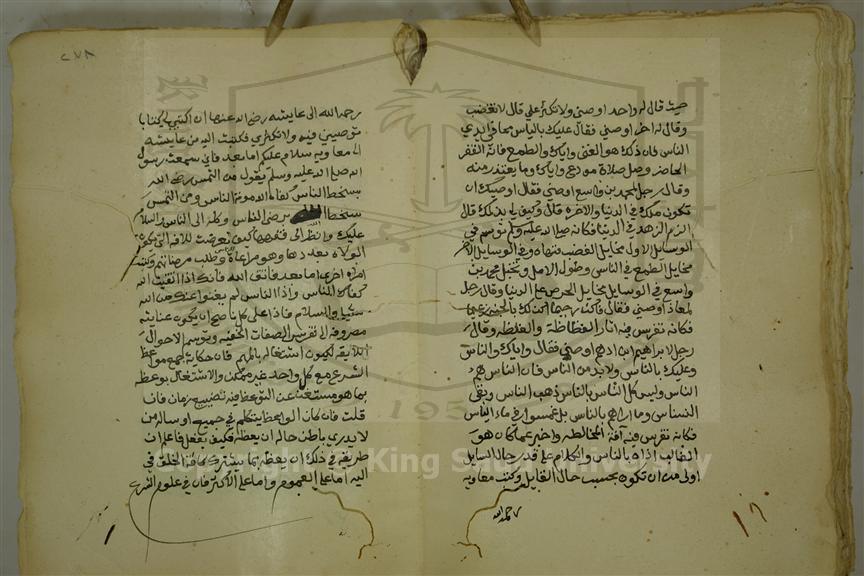 حيث قال له واحد اوصني ولا تكثر علي قال لا تغضب
وقال له اخر اوصني فقال عليك بالياس مما في ايدي
الناس فان ذلك هو الغنى واياك والطمع فانه الفقر
الحاضر وصل صلاة مودع واياك وما يعتذر منه
وقال رجل لمحمد بن واسع اوصني فقال اوصيك ان
تكون ملكا في الدنيا والاخرة قال وكيف لي بذلك قال
الزم الزهد في الدنيا فكانه صلى الله عليه وسلم توسم في
السايل الاول مخايل الغضب فنهاه وفي السايل الاخر
مخايل الطمع في الناس وطول الامل وتخيل محمد بن
واسع في السايل مخايل الحرص على الدنيا وقال رجل
لمعاذ اوصني فقال كن رحيما اكن لك بالجنة زعيما
فكانه تفرس فيه اثار الفظاظة والغلظة وقال
رجل لابراهيم ابن ادهم اوصني فقال واياك والناس
وعليك بالناس ولا بد من الناس فان الناس هم
الناس وليس كل الناس بالناس ذهب الناس وبقي
النسناس وما اراهم بالناس بل غمسوا في ماء الياس
فكانه تفرس فيه آفة المخالطة واخبر عما كان هو
الغالب اذاه بالناس والكلام على قدر حال السايل
اولى من ان يكون بحسب حال القايل وكتب معاوية
رحمه الله
٢٧٨
رحمه الله الى عايشه رضي الله عنها ان اكتبي لي كتابا
توصيني فيه ولا تكثري فكتبت اليه من عايشه
الى معاوية سلام عليك اما بعد فاني سمعت رسول
الله صلى الله عليه وسلم يقول من التمس رضى الله
بسخط الناس كفاه الله مونة الناس ومن التمس
سخط الله برضى الناس وكله الى الناس والسلام
عليك وانظر الى فقهها كيف تعرضت للافة التي تكون
الولاة بصددها وهو مراعاة الناس وطلب مرضاتهم وكتبت
اليه مرة اخرى اما بعد فاتق الله فانك اذا اتقيت الله
كفاك الناس واذا اتقيت الناس لم يغنوا عنك من الله
شيئا والسلام فاذا على كل ناصح ان يكون عنايته
مصروفه الى تفرس الصفات الخفيه وتوسم الاحوال
اللايقه ليكون اشتغاله بالمهم فان حكاية جميع مواعظ
الشرع مع كل واحد غير ممكن والاشتغال بوعظه
بما هو مستغن عن التوعظ فيه تضييع زمان فان
قلت فان كان الواعظ يتكلم في جميع او ساله من
لا يدري باطن حاله ان يعظه فكيف يفعل فاعلم ان
طريقه في ذلك ان يعظه بما يشترك كافة الخلق في
اليه اما على العموم واما على الاكثر فان في علوم الشرع
Copyright © King Saud University
195